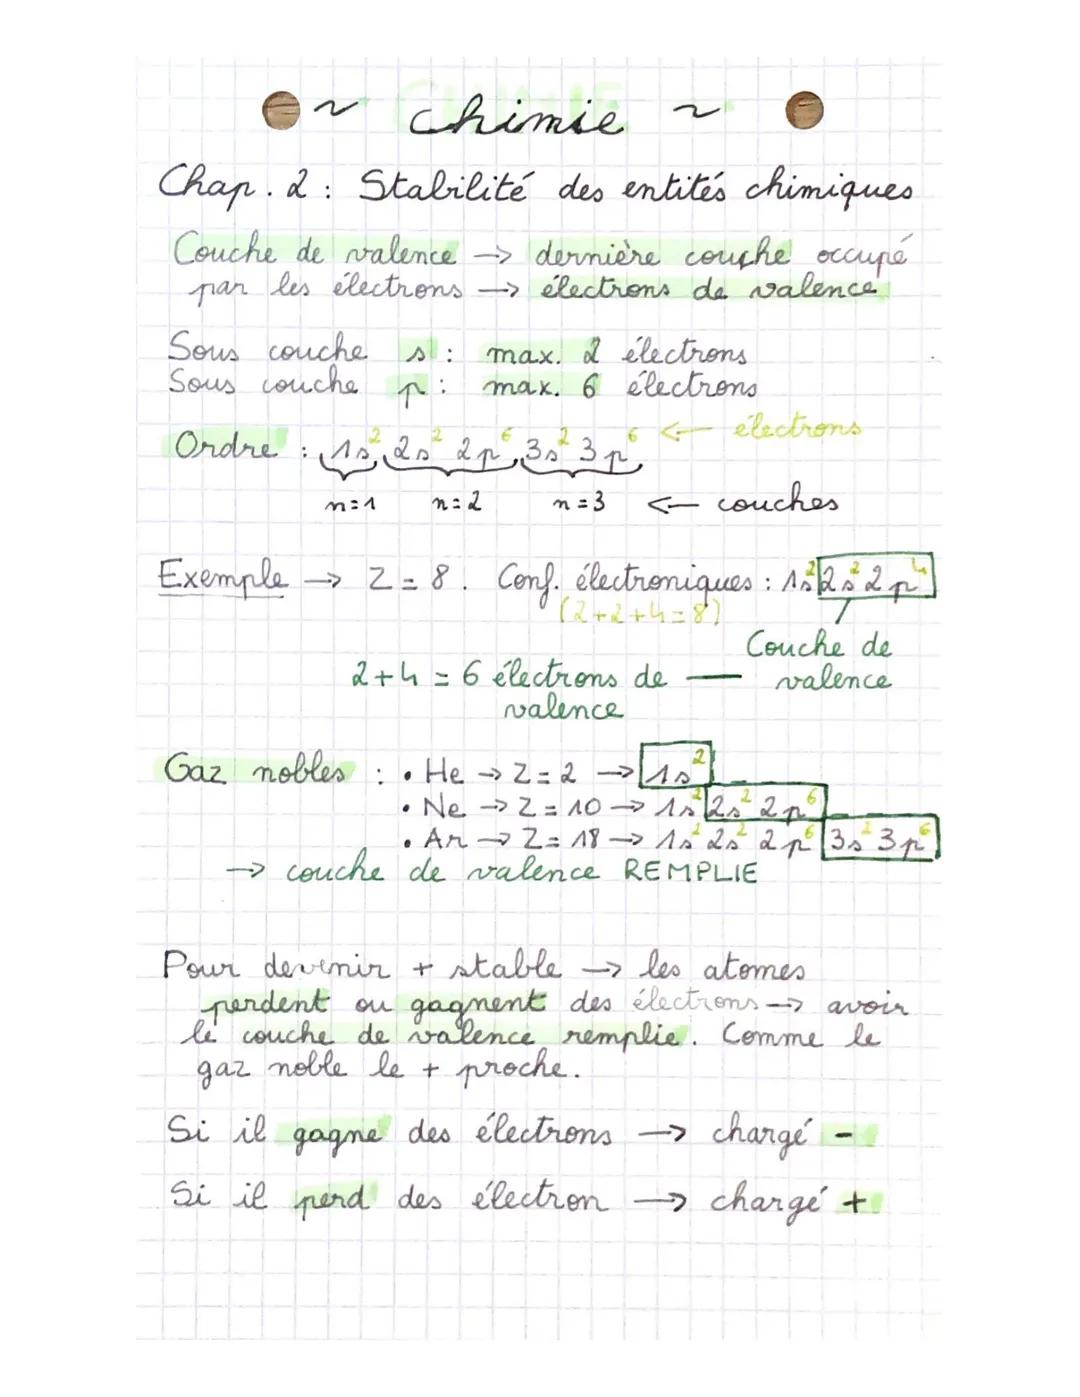 ~ chimie ~
Chap. 2 : Stabilité des entités chimiques
Couche de valence → dernière couche occupé
par les électrons → électrons de valence
Sous couche s : max. 2 électrons
Sous couche p : max. 6 électrons
Ordre : 1s² 2s² 2p⁶ 3s² 3p⁶ ← électrons
n=1 n=2 n=3 ← couches
Exemple → Z = 8. Conf. électroniques : 1s² 2s² 2p⁴
(2+2+4=8)
Couche de
valence
2+4 = 6 électrons de —
valence
Gaz nobles : • He → Z=2 → 1s²
• Ne → Z=10 → 1s² 2s² 2p⁶
• Ar → Z=18 → 1s² 2s² 2p⁶ 3s² 3p⁶
→ couche de valence REMPLIE
Pour devenir + stable → les atomes
perdent ou gagnent des électrons → avoir
le couche de valence remplie. Comme le
gaz noble le + proche.
Si il gagne des électrons → chargé -
Si il perd des électron → chargé +